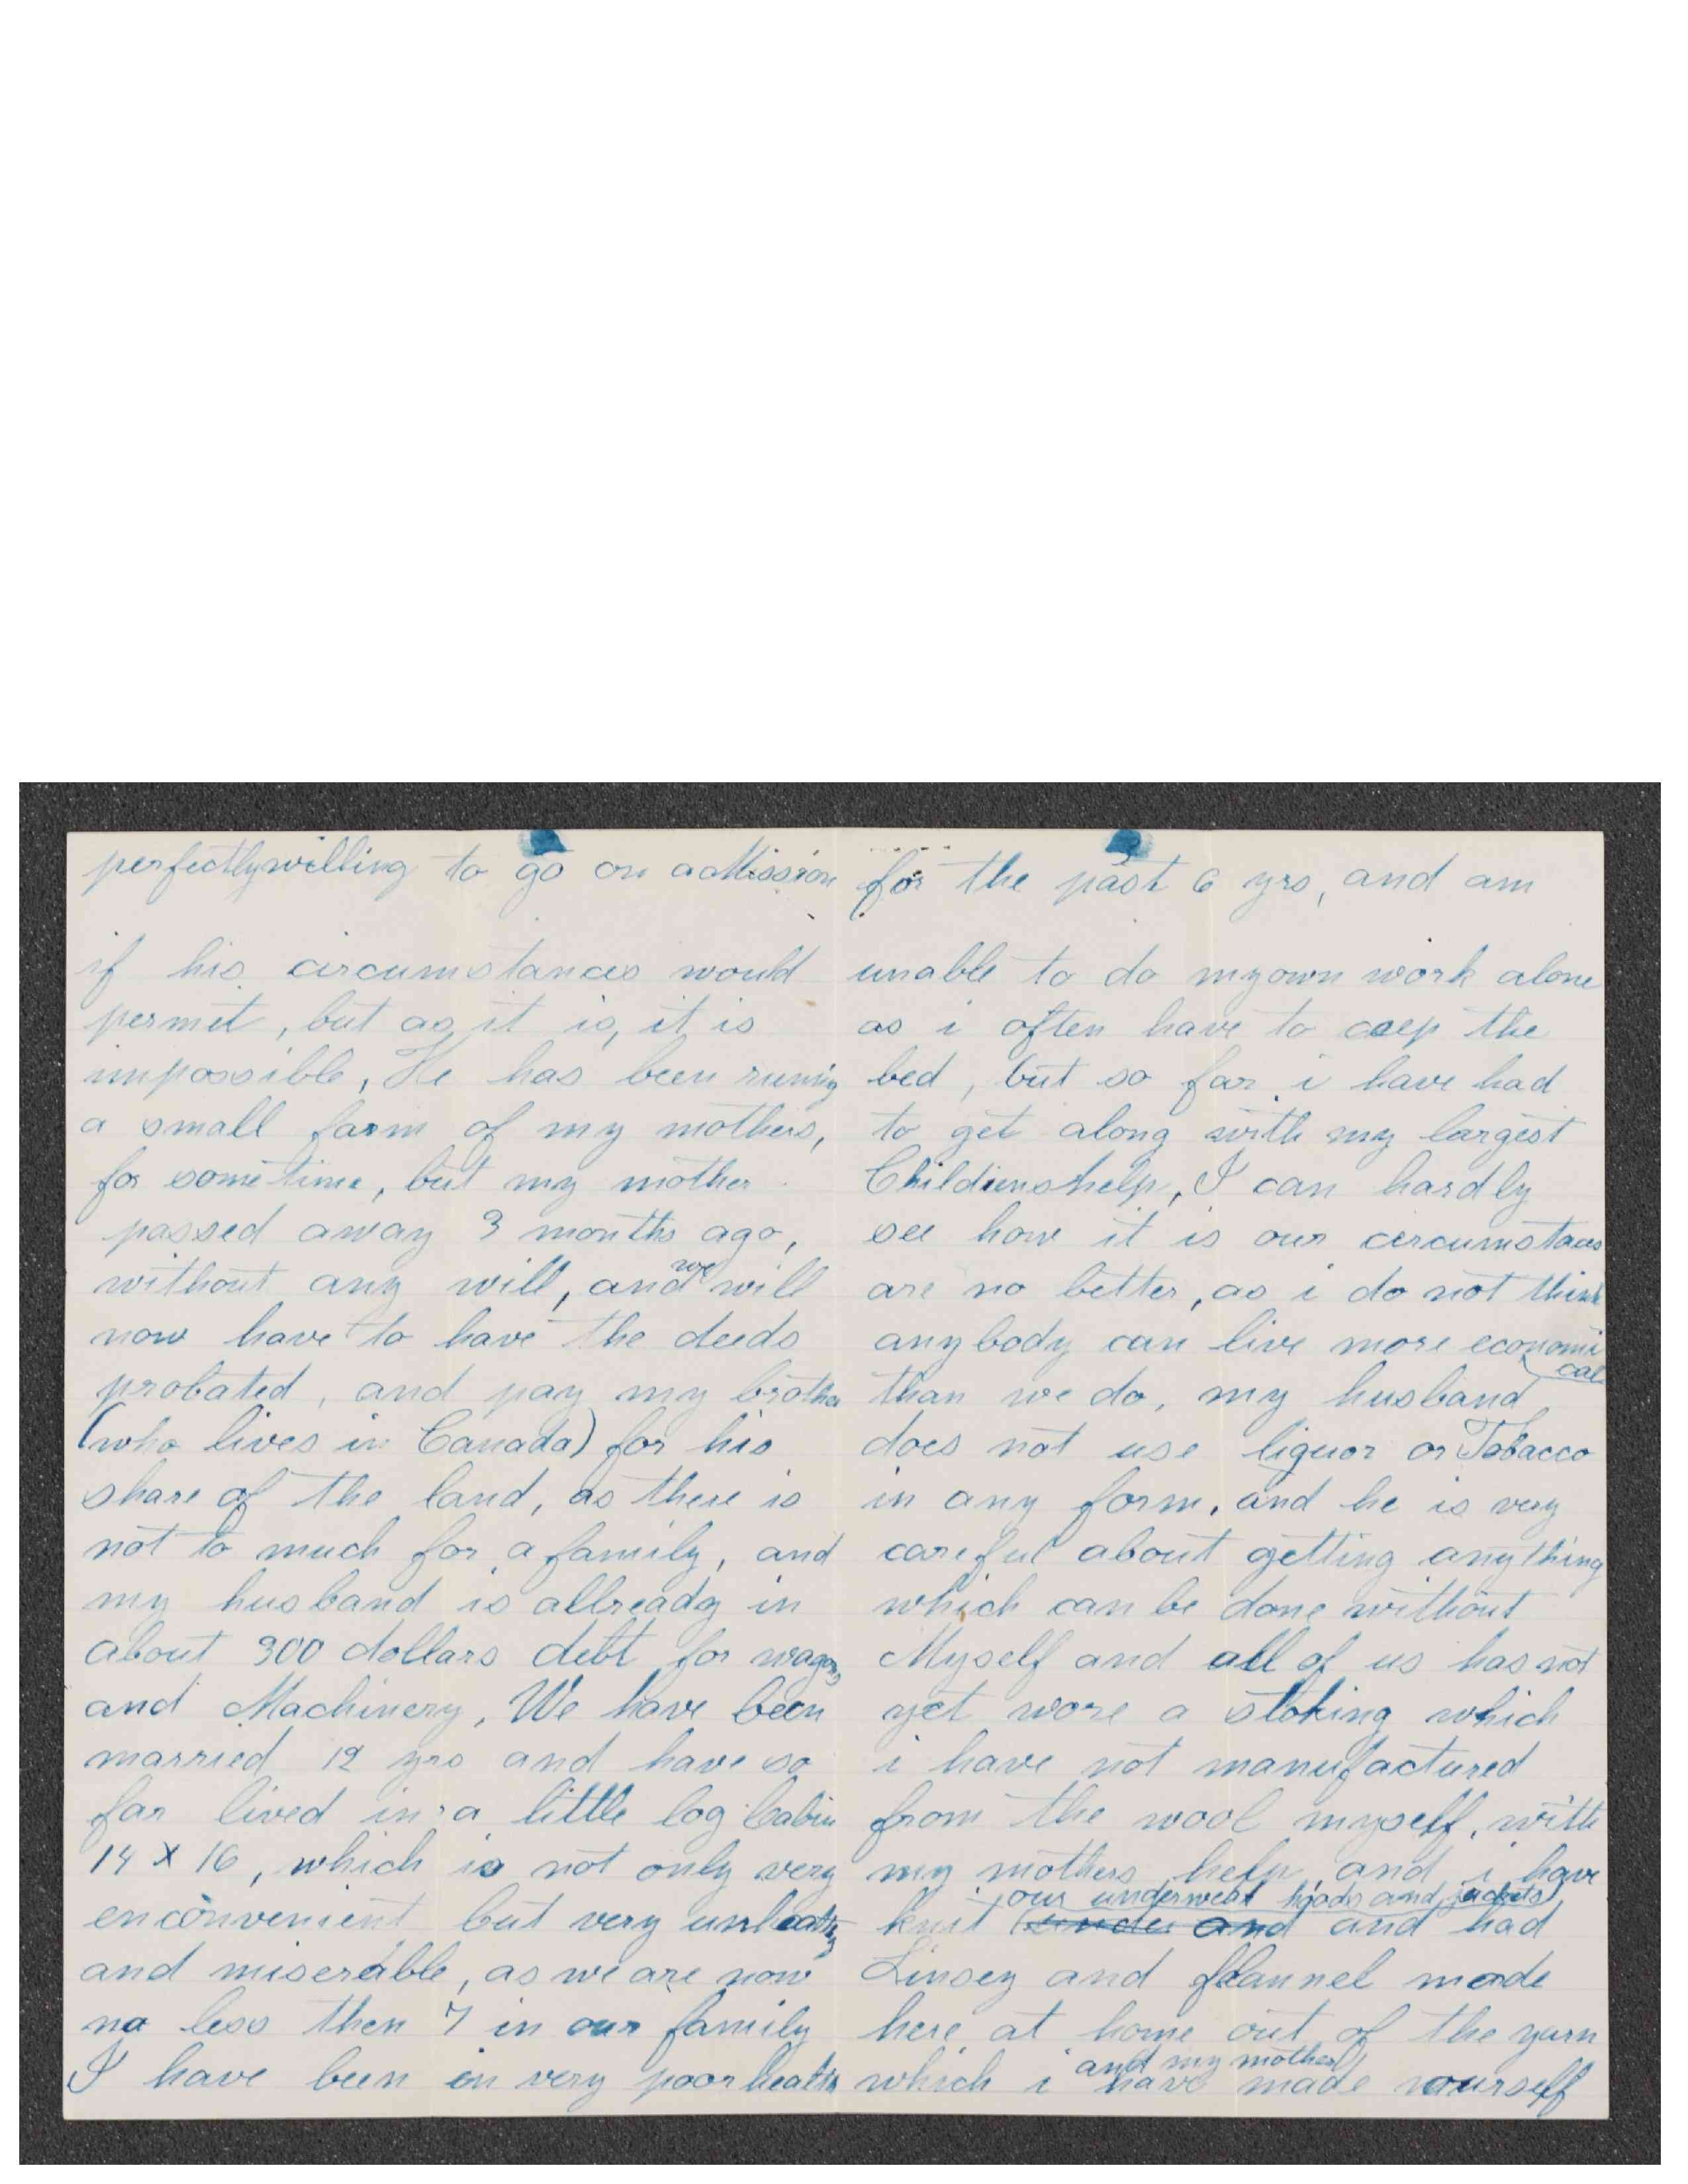 perfectly willing to go on a Mission
if his circumstances would
permit, but as it is, it is
impossible, He has been runing
a small farm of my mothers,
for sometime, but my mother
passed away 3 months ago,
without any will, and we will
now have to have the deeds
probated, and pay my brother
(who lives in Canada) for his
share of the land, as there is
not to much for a family, and
my husband is allready in
about 300 dollars debt for wagon,
and Machinery, We have been
married 12 yrs and have so
far lived in a little log Cabin
14 x 16, which is not only very
enconvenient but very unleathy
and miserable, as we are now
no less then 7 in our family
I have been in very poor health
for the past 6 yrs, and am
unable to do my own work alone
as i often have to ceep the
bed, but so far i have had
to get along with my largest
Childrens help, I can hardly
see how it is our circumstaces
are no better, as i do not think
anybody can live more economical
than we do, my husband
does not use liquor or Tobacco
in any form, and he is very
careful about getting anything
which can be done without
Myself and all of us has not
yet wore a stoking which
i have not manufactured
from the wool myself, with
my mothers help, and i have
our underwear hoods and jackets
knit and and had
Linsey and flannel made
here at home out of the yarn
and my mother
which i have made ourself